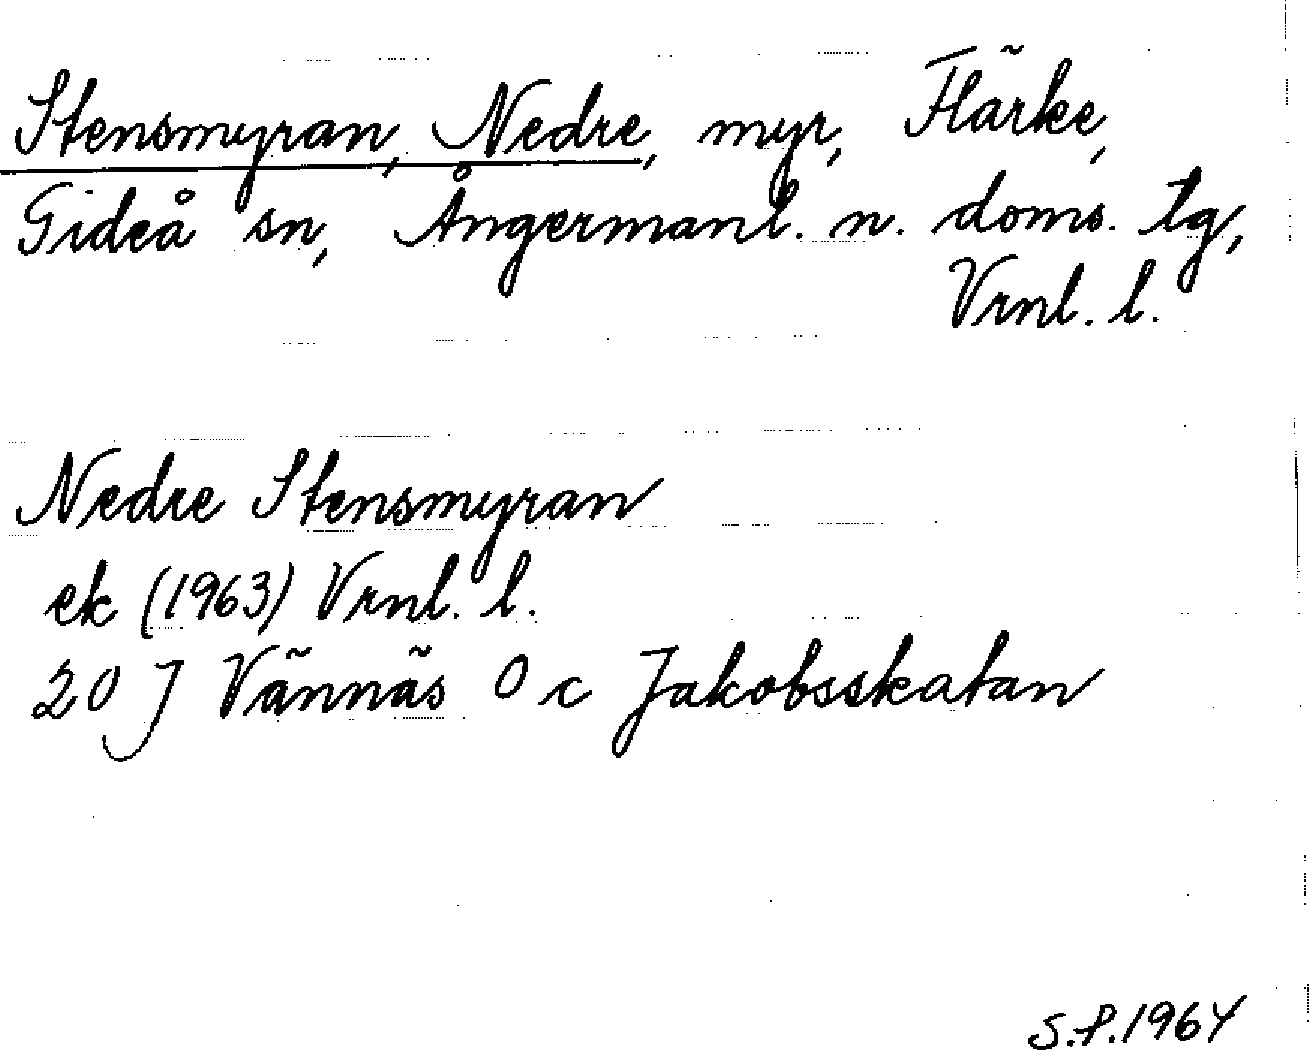 Stensmyran, Nedre, myr, Flärke,
Gideå sn, Ångermanl. n. doms. tg,
Vrnl. l.
Nedre Stensmyran
ek (1963) Vrnl. l.
20 J Vännäs 0 c Jakobsskatan
S.P. 1964